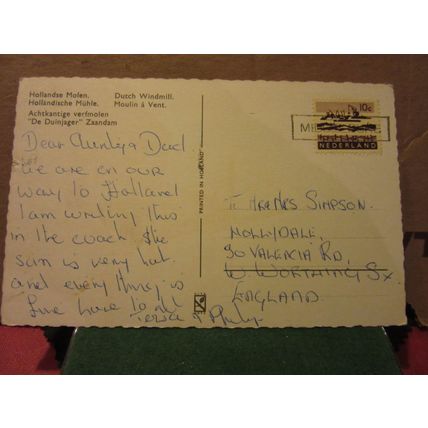 Hollandse Molen. Dutch Windmill.
Holländische Mühle. Moulin á Vent.
Achtkantige verfmolen
"De Duinjager" Zaandam
Dear Dad
we are on our
way to Holland
I am writing this
in the coach the
sun is very hot
and every thing is
fine love to all
& Philip
PRINTED IN HOLLAND
10c
NEDERLAND
SIMPSON.
HOLLYDALE,
90 VALENCIA RD,
W WORTHING SX.
ENGLAND